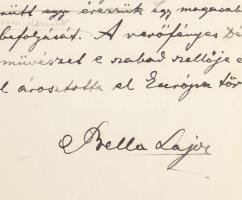 rütt egy érezzük egy magasabb
befolyását. A verőfényes
művészet e szabad szellője
árasztotta el Európa
Bella Lajos